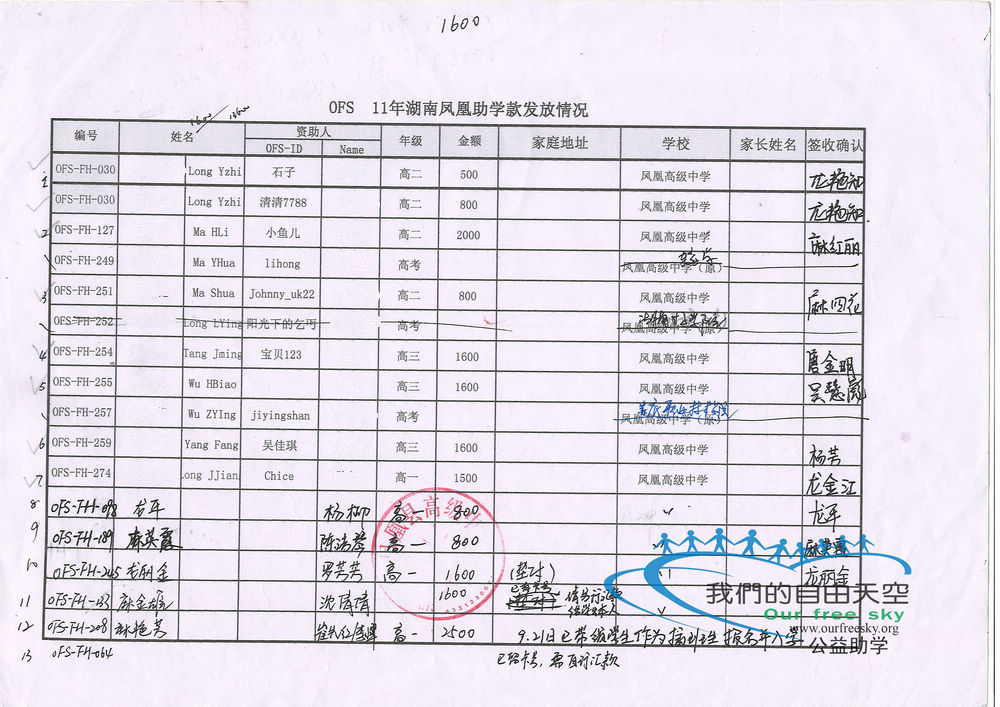 1600
OFS 11年湖南凤凰助学款发放情况
编号 姓名 资助人 年级 金额 家庭地址 学校 家长姓名 签收确认
OFS-ID Name
OFS-FH-030 Long Yzhi 石子 高二 500 凤凰高级中学
OFS-FH-030 Long Yzhi 清清7788 高二 800 凤凰高级中学
OFS-FH-127 Ma HLi 小鱼儿 高二 2000 凤凰高级中学 麻红丽
OFS-FH-249 Ma YHua lihong 高考 凤凰高级中学（原）
OFS-FH-251 Ma Shua Johnny_uk22 高二 800 凤凰高级中学 麻四花
OFS-FH-252 Long LYing 阳光下的乞丐 高考 凤凰高级中学（原）
OFS-FH-254 Tang Jming 宝贝123 高三 1600 凤凰高级中学 唐金明
OFS-FH-255 Wu HBiao 高三 1600 凤凰高级中学
OFS-FH-257 Wu ZYIng jiyingshan 高考 凤凰高级中学（原）
OFS-FH-259 Yang Fang 吴佳琪 高三 1600 凤凰高级中学 杨芳
OFS-FH-274 ong JJian Chice 高一 1500 凤凰高级中学 龙金江
8 OFS-FH-098 龙平 杨柳 高一 800 龙平
9 OFS-FH-189 麻英霞 高一 800 麻英霞
10 OFS-FH-245 龙丽金 罗芳芳 高一 1600 (垫付) 龙丽金
11 OFS-FH-123 沈倩倩 1600
12 OFS-FH-208 麻艳芳 高一 2500 9.21日已带领学生作为插班生报名并入学
13 OFS-FH-064 已给卡号，需自行汇款
我們的自由天空
Our free sky
www.ourfreesky.org
公益助学